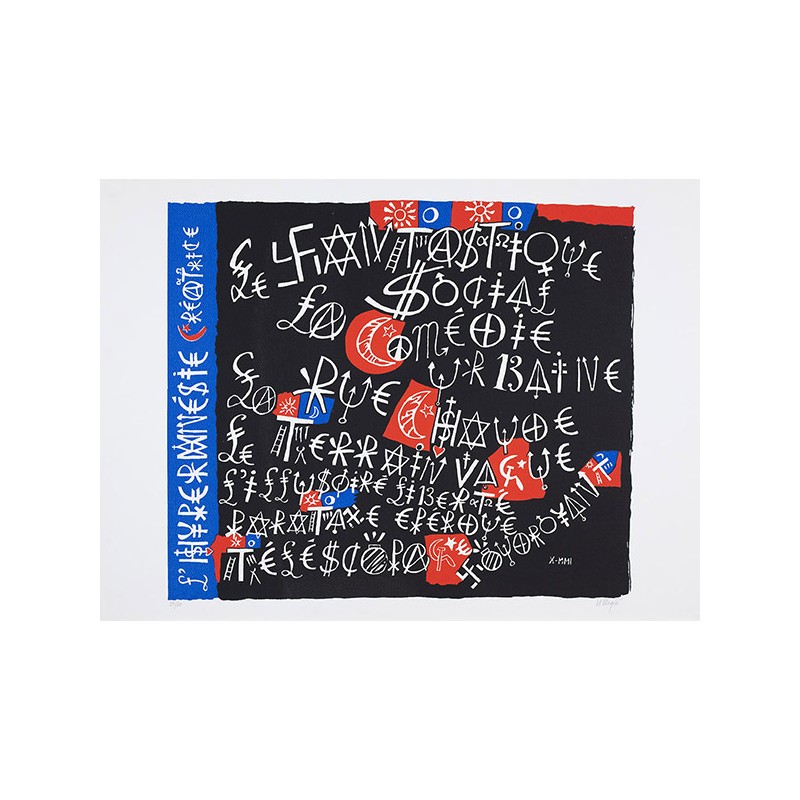 L'HYPERMNÉSIE CRÉATRICE
LE FANTASTIQUE
SOCIAL
LA COMÉDIE
URBAINE
LA RUE CHAUDE
LE TERRAIN VAGUE
L'ILLUSOIRE LIBERTÉ
PARATAXE ÉPERDUE
TÉLESCOPAGE FOUDROYANT
X-MMI